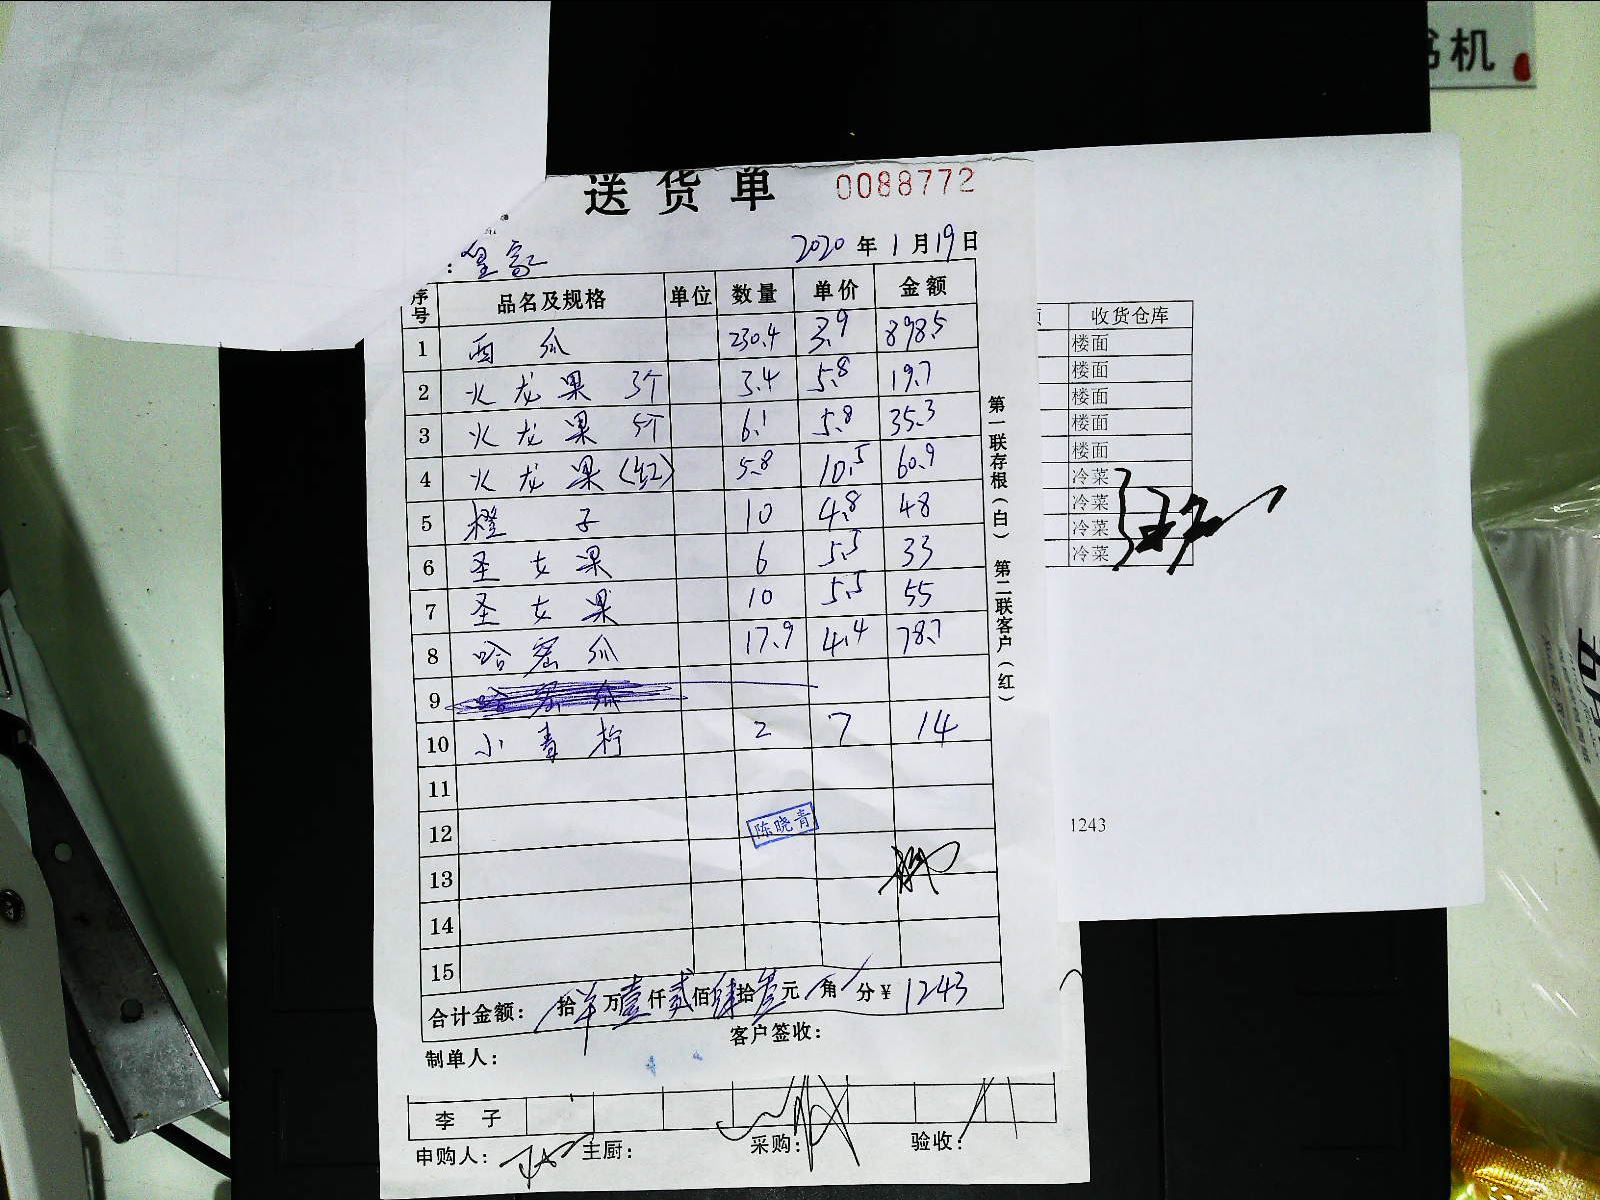 书机
送货单 0088772
：皇家 2020年1月19日
序号 品名及规格 单位 数量 单价 金额
1 西瓜 230.4 3.9 898.5
2 火龙果 3个 3.4 5.8 19.7
3 火龙果 5个 6.1 5.8 35.3
4 火龙果（红） 5.8 10.5 60.9
5 橙子 10 4.8 48
6 圣女果 6 5.5 33
7 圣女果 10 5.5 55
8 哈密瓜 17.9 4.4 78.7
9 哈密瓜
10 小青柠 2 7 14
11
12 陈晓青
13
14
15
合计金额： 拾 万壹仟贰佰肆拾叁元 角 分¥ 1243
制单人： 客户签收：
第一联存根（白） 第二联客户（红）
收货仓库
楼面
楼面
楼面
楼面
楼面
冷菜
冷菜
冷菜
冷菜
1243
李子
申购人： 主厨： 采购： 验收：